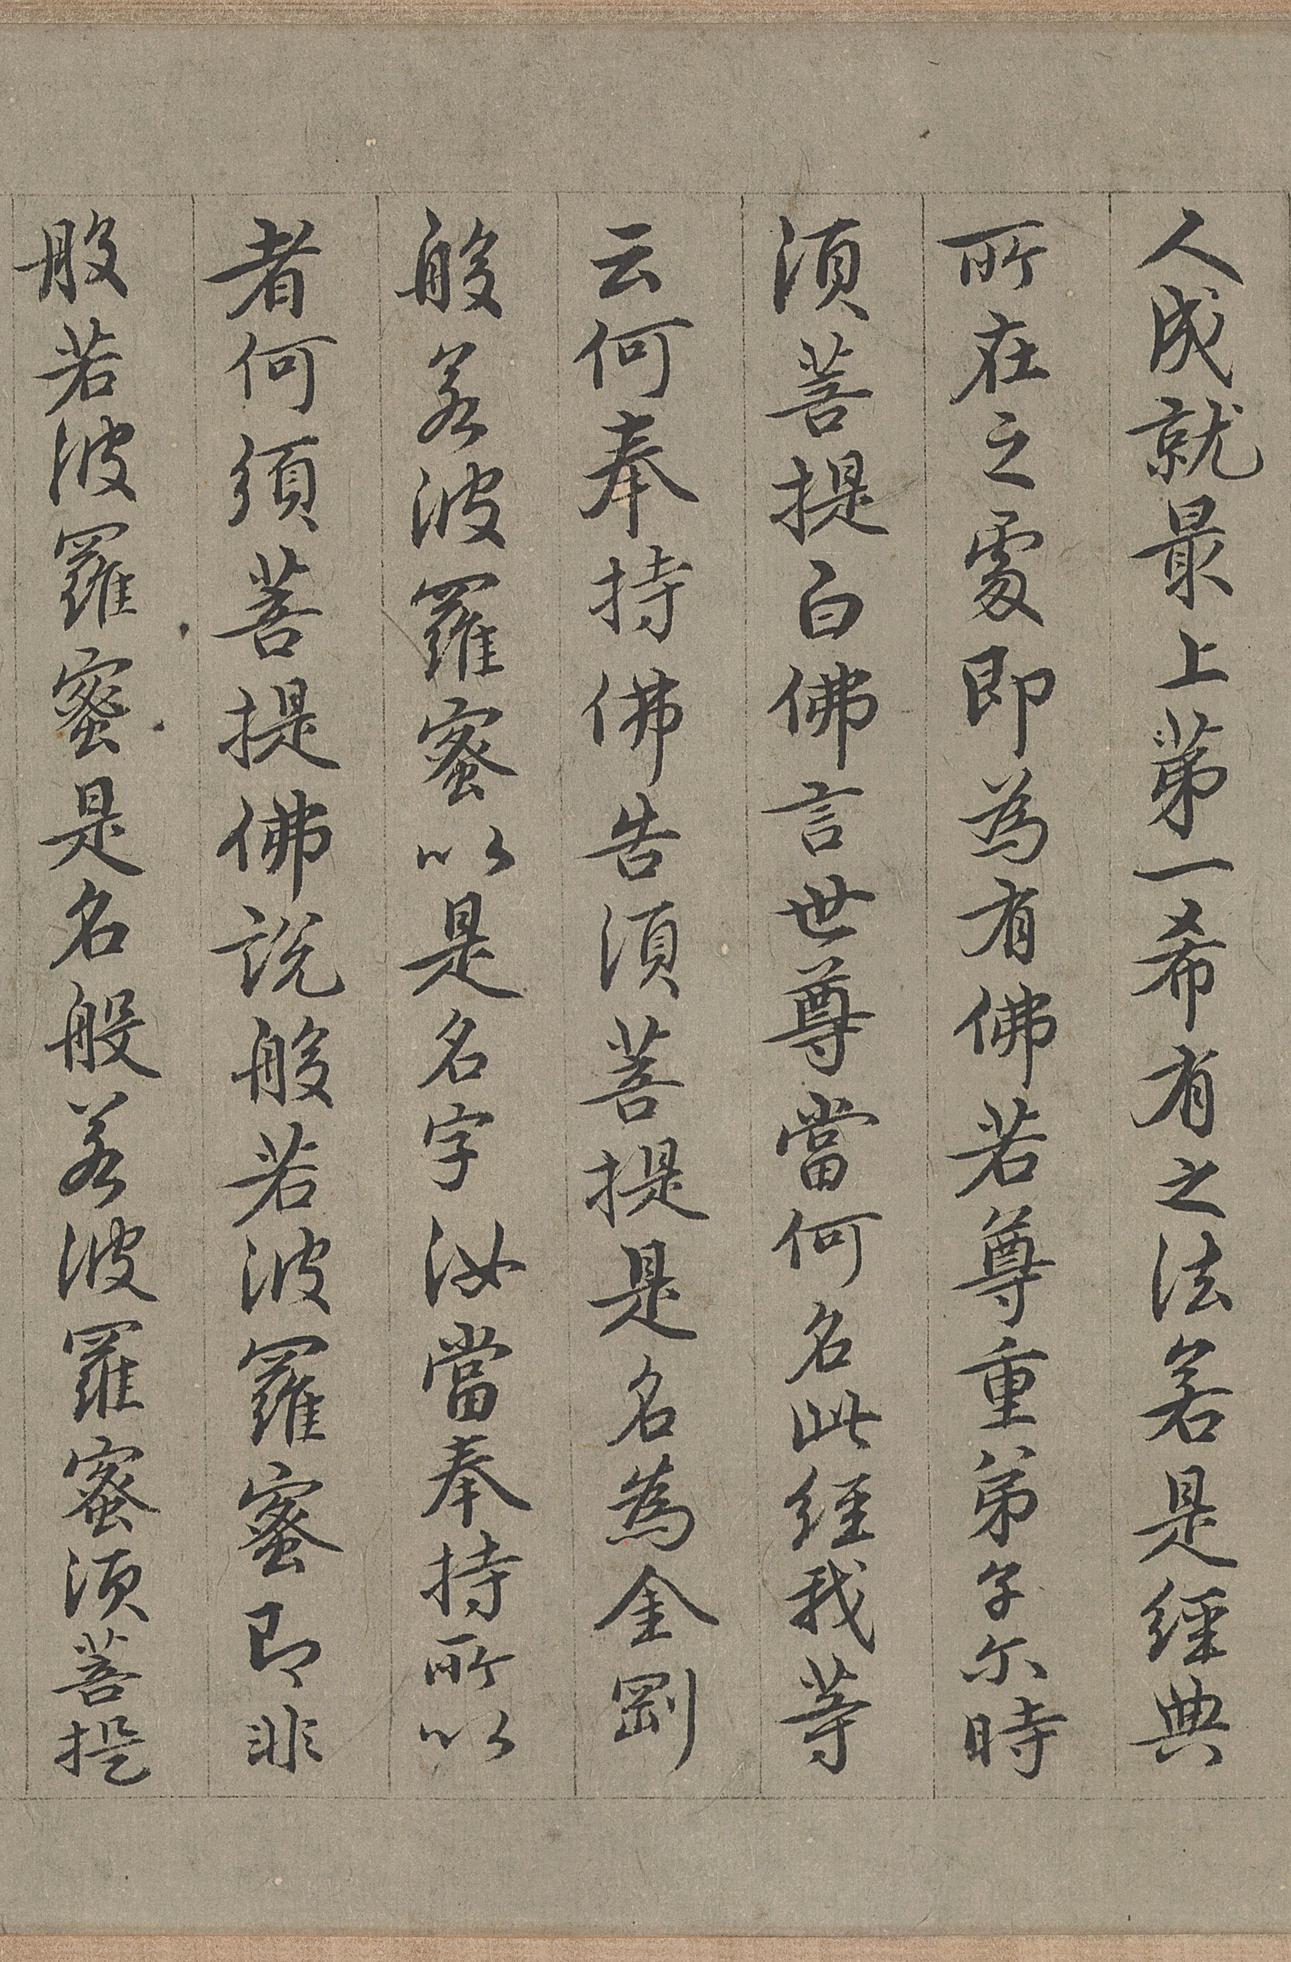 人成就最上第一希有之法若是經典
所在之處即為有佛若尊重弟子尒時
須菩提白佛言世尊當何名此經我等
云何奉持佛告須菩提是名為金剛
般若波羅蜜以是名字汝當奉持所以
者何須菩提佛說般若波羅蜜即非
般若波羅蜜是名般若波羅蜜須菩提